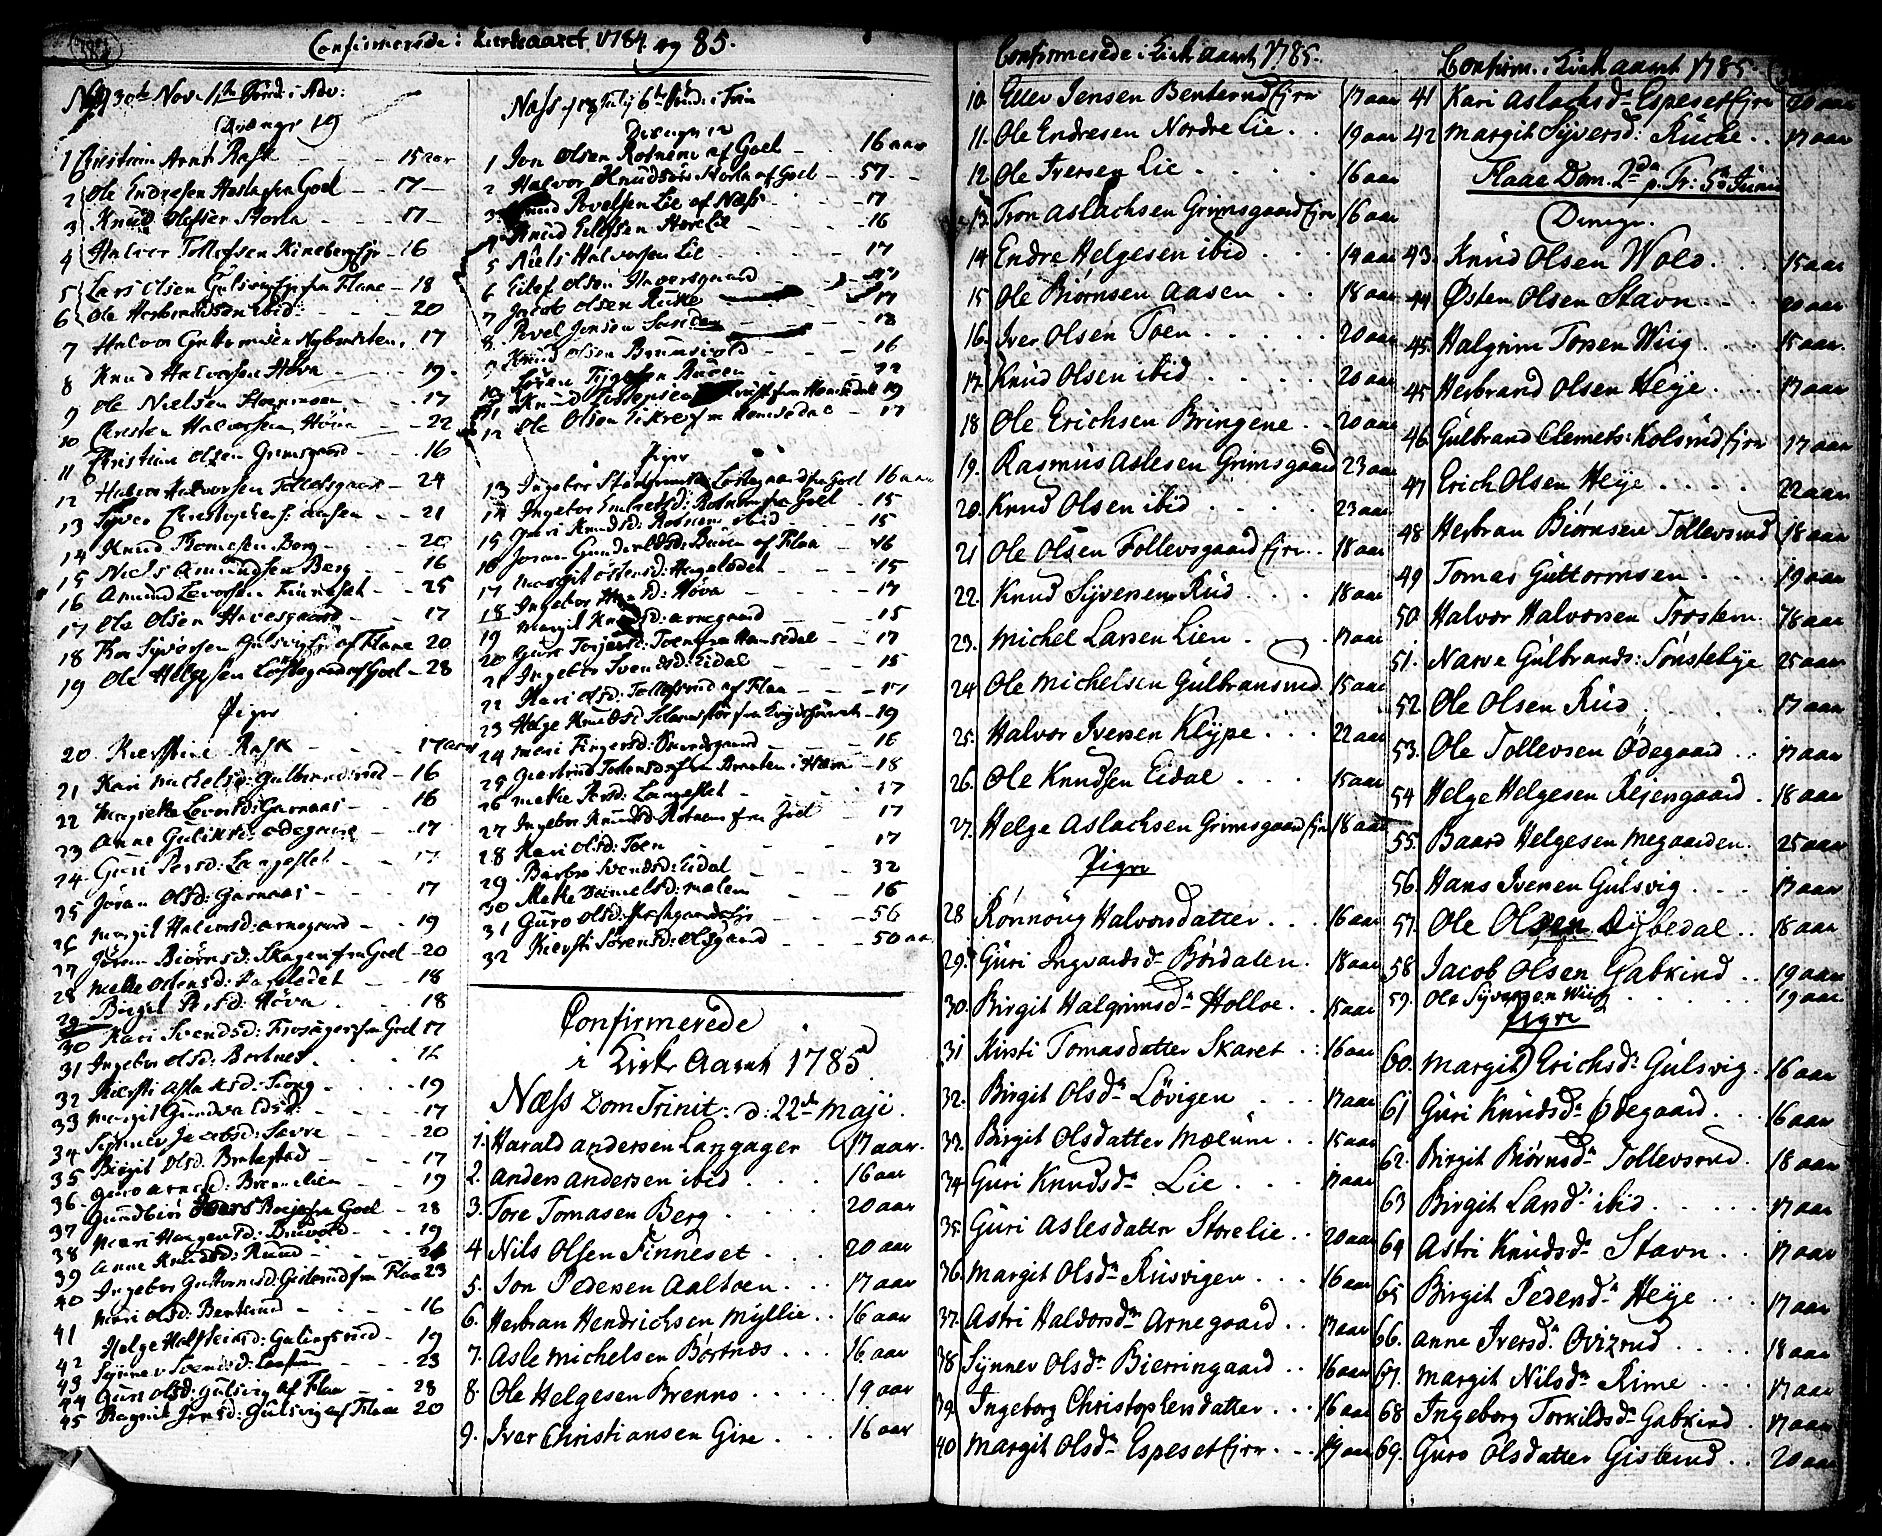 Confirmerede i Kirkeaaret 1784 og 85.
30te Nov. 1th Sönd: i Adv:
Drenge 19
1 Christian Arnt Rask - - - 15 aar
2 Ole Endresen Haslafra Goel - 17 -
3 Knud Olessen Storla - - 17 -
4 Halvor Tollefsen Kinebergejr - 16
5 Lars Olsen Gulsvigejr fra Flaae - 18
6 Ole Herbrandsen ibid: - - - 20
7 Halvor Guttormsen Nybraaten, 17
8 Knud Halvorsen Höva - - 19.
9 Ole Nielsen - - 17
10 Christen Halvorsen Höva - - 22
11 Christian Olsen Grimsgaard - - 16
12 Halvor Halvorsen Tollefsgaard - 24
13 Syver Christophers: Aasen - - 21
14 Knud Tomesen Berg - - - 20
15 Niels Amundsen Berg - - - 16
16 Amund Levorsen Finneset - - 25
17 Ole Olsen Haversgaard - - 17
18 Thor Syversen Gulsvigejr af Flaae 20
19 Ole Helgesen Löstegaard af Goel - 28
Piger
20. Kierstine Rask - - - 17 aar
21 Kari Michelsd: Gulbrandsrud - 16
22 Margrethe Levorsd: Garnaas - - 16
23 Anne Guliksd: Ødegaard - - 17
24 Guri Persd: Langeslet - - 17
25 Jöran Olsd: Garnaas - - - 17
26 Margit Halvorsd: Arnegaard - - 19
27 Jöran Biörnsd: Skagen fra Goel - 20
28 Mette Olsensd: Hagelödet - - 18
29 Birgit Persd: Höva - - - 18
30 Kari Svendsd: fra Goel 17
31 Ingebor Olsd: Bortnes - - 16
32 Kiersti Aslaksd: Tiong - - - 19
33 Margit Gundvaldsd: - - - 17
34 Synnev Jacobsd: Sævre - - 20
35 Birgit Olsd: Bratestad - - 17
36 Guro Arnesd: Brennelien - - 19
37 Gundbiör fra Goel - 28
38 Mari Haagensd: Bruvold - - 19
39 Anne Knudsd: Ruud - - -
40 Ingebor Guttormsd: Gislerud fra Flaa 23
41 Mari Olsd: Bentrud - - - 16
42 Helge Halsteensd: Gulingsrud - 19
43 Synnev Svensd: - - - 23
44 Guri Olsd: Gulsvig af Flaa - - 28
45 Ragnil Jensd: Gulsvig af Flaae 20
Næss d 18 July 6te Sönd: i Trin
Drenge 12
1 Jon Olsen Rotneim af Goel - 16 aar
2 Halvor Knudsön Storla af Goel - 57 - -
3. Knud Povelsen Lie af Næss - - 17
4 Knud Eilefsen Storelie - - - 16
5 Niels Halvorsen Lie - - - 17
6 Eilef Olsen Haversgaard - - 17
7 Jacob Olsen Rucke - - 17
8. Povel Jensen - - - 18
9 Knud Olsen Bruusvold - - - 16
10 - - - 22
11 Knud fra Hemsedal 19
12 Ole Olsen Eikre fra Hemsedal - 17
Piger
13 Ingebor Löstegaard fra Goel 16 aar
14 Ingebor Embretsd: Rotneim fra Goel - 15
15 Guri Knudsd: Rotneim ibid - - 15
16 Joran Gunderlsd: Buin af Flaa - 16
17 Margit Östensd: Hagelödet - - - 15
18 Ingebor Höva - - - 17
19 Margit Knudsd: Arnegaard - - 15
20 Guri Torjersd: Toen fra Hemsedal - - 17
21 Ingebor Svendsd: Eidal - - 15
22 Kari Olsd: Tollefsrud af Flaa - - - 17
23 Helge Knudsd: fra - 19
24 Mari Fingersd: - - - 16
25 Giertrud fra Braaten i Næss - 18
26 Mette Persd: Langeslet - - - 17
27 Ingebor Knudsd: Rotneim fra Goel - - 17
28 Kari Olsd: Toen - - - 17
29 Barbro Svendsd: Eidal - - - 32
30 Mette Danielsd: Malen - - - 16
31 Guro Olsd: - - - 56
32 Kiersti Sörensd: Olsgaard - - - 50 aar
Confirmerede
i Kirke Aaret 1785
Næss Dom Trinit: d: 22de Maji.
1. Harald Andersen Langager 17 aar.
2. Anders Andersen ibid . . . 16 aar
3. Tore Tomasen Berg . . . 20 aar
4 Nils Olsen Finneset . . . 20 aar
5. Jon Pedersen Aaltoen . . . 17 aar
6. Herbran Hendrichsen Myllie . . 16 aar
7. Asle Michelsen Börtnæs . . . 16 aar
8. Ole Helgesen Brenno . . . . 19 aar
9. Iver Christiansen Gire . . . 16 aar
Confirmerede i Kirk aaret 1785.
10. Ellev Jensen Benterudejrn 17 aar
11. Ole Endresen Nordre Lie . . 19 aar
12. Ole Iversen Lie . . . . . 16 aar
13. Tron Aslachsen Grimsgaardejrn 16 aar
14 Endre Helgesen ibid . . . 19 aar
15 Ole Biörnsen Aasen . . 18 aar
16. Iver Olsen Toen . . . . 20 aar
17. Knud Olsen ibid . . . . . 20 aar
18 Ole Erichsen Bringene . . 20 aar
19. Rasmus Aslesen Grimsgaard 23 aar
20. Knud Olsen ibid . . . . . 23 aar
21 Ole Olsen Follevsgaard ejrn . . 18 aar
22. Knud Syversen Rud . . . 18 aar
23. Michel Larsen Lien . . . 17 aar
24 Ole Michelsen Gulbransrud 15 aar
25. Halvor Iversen Klype . . . 22 aar
26. Ole Knudsen Eidal . . . 15 aar
27. Helge Aslachsen Grimsgaardejrn 18 aar
Pigre
28 Rönnöug Halvorsdatter . . . 16 aar
29. Guri Ingvaldsdr Bördalen . 18 aar
30. Birgit Halgrimsdr Holloe . . 15 aar
31 Kirsti Tomasdatter Skaret . . 16 aar
32. Birgit Olsdr Lövigen . . . 17 aar
33. Birgit Olsdatter Mælum . . 15 aar
34 Guri Knudsdr Lie . . . 17 aar
35. Guri Aslesdatter Storelie . . 20 aar
36. Margit Olsdr Rusvigen . . . 16 aar
37. Astri Haldorsdr Arnegaard . . 17 aar
38 Synnev Olsdr Bierringaard . . 16 aar
39. Ingeborg Christophersdatter . . . 16 aar
40 Margit Olsdr Espesetejrn . . . 19 aar
Confirm. i Kirk aaret 1785.
41 Kari Aslachsdr Espesetejrn 20 aar
42 Margit Syversd: Rucke . . 17 aar
Flaae Dom. 2da p. Tr: 5te Junii
Drenge.
43. Knud Olsen Wold . . . 15 aar
44. Østen Olsen Stavn . . . 20 aar
45. Halgrim Torsen Wiig . . . 15 aar.
45 Herbrand Olsen Heye . . . 17 aar
46 Gulbrand Clemets: Kolsrudejrn 17 aar
47 Erich Olsen Heye . . . . 22 aar
48 Herbran Biörnsen Tollevsrud 18 aar
49 Tomas Guttormsen . . . 19 aar
50 Halvor Halvorsen Trostem . 18 aar
51. Narve Gulbrands: Sönstebye 25 aar
52. Ole Olsen Rud . . . . 17 aar
53. Ole Tollevsen Ödegaard . . 17 aar
54 Helge Helgesen Rejengaard . 18 aar
55. Baard Helgesen Megaarden. 25 aar
56. Hans Iversen Gulsvig . . . 17 aar
57. Ole Olsen Dybedal . . 18 aar
58 Jacob Olsen Gabrud . . 19 aar
59. Ole Syversen Wiig . . . . 19 aar
Pigre
60. Margit Erichsdr Gulsvig . 16 aar
61 Guri Knudsdr Ödegaard . . . 16 aar
62. Birgit Biörnsdr Tollevsrud . 18 aar
63 Birgit Larsdr ibid . . . . 17 aar
64 Astri Knudsdr Stavn . . 17 aar
65 Birgit Pedersdr Heye . . . 17 aar
66. Anne Iversdr Ovizrud . . . . 18 aar
67. Margit Nilsdr Rime . . . 17 aar
68 Ingeborg Torkildsdr Gabrud . 17 aar
69. Guro Olsdatter Gislerud . . 20 aar